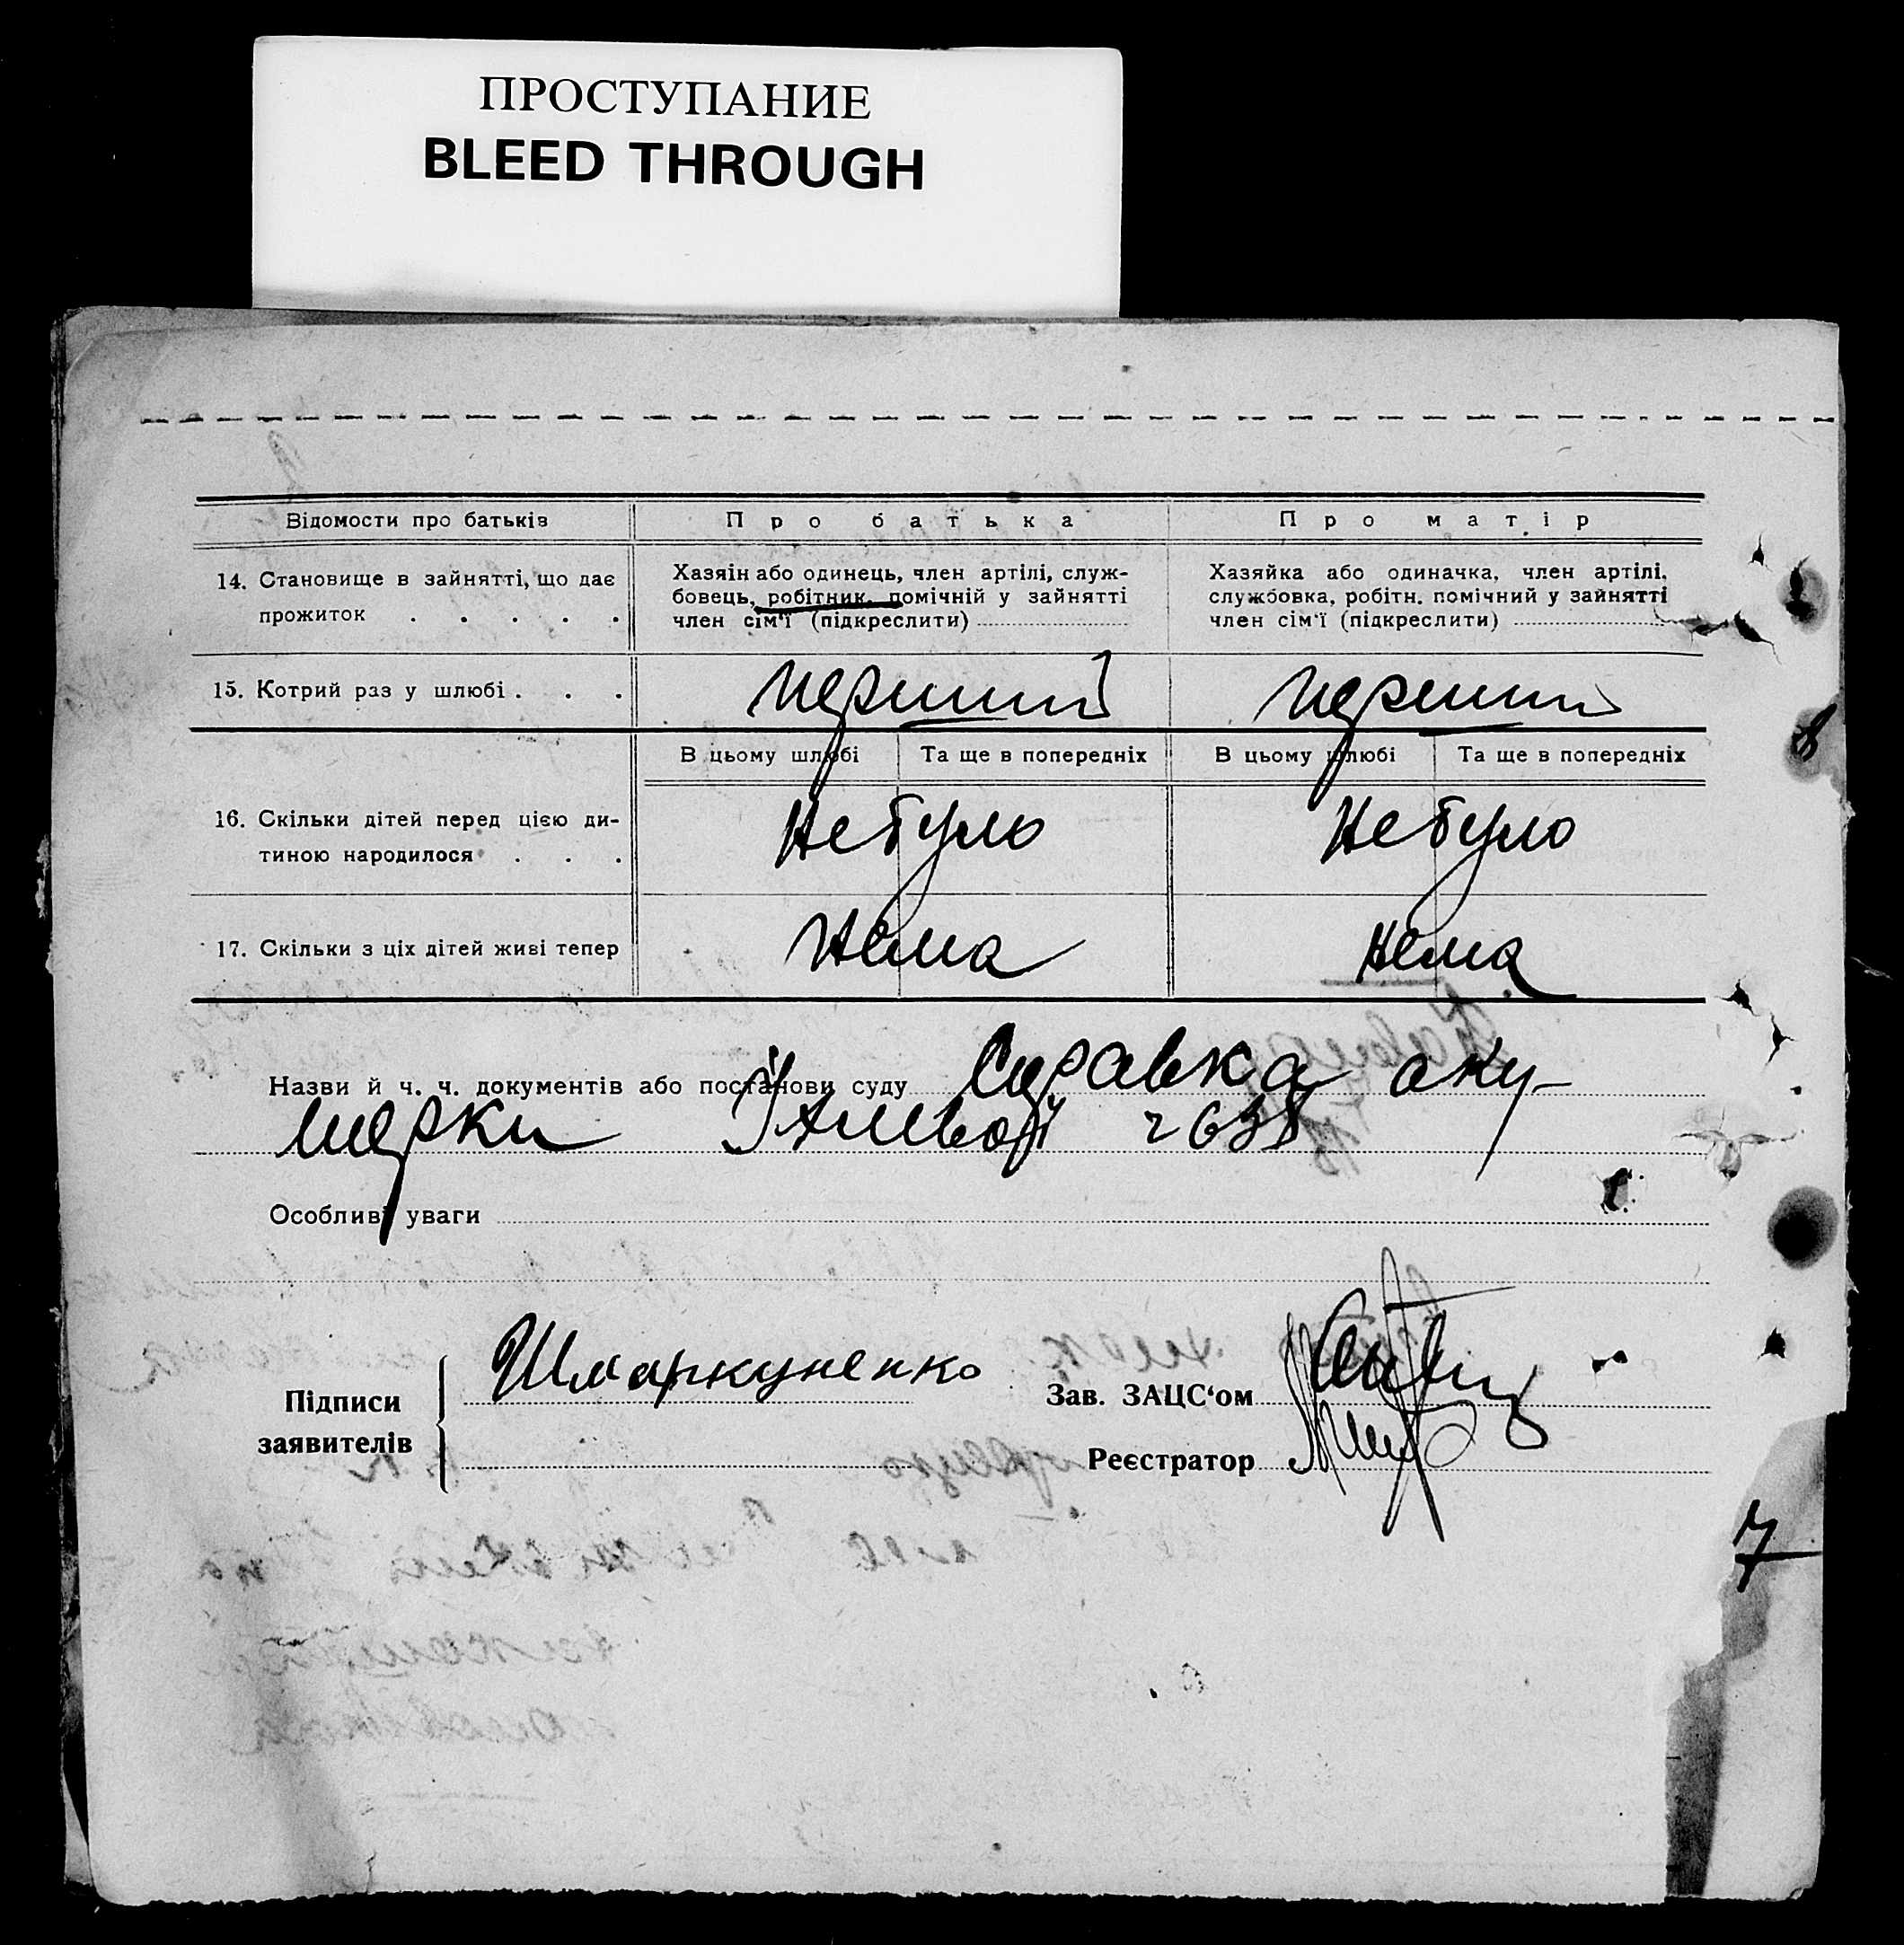 ПРОСТУПАНИЕ
BLEED THROUGH
Відомости про батьків
Про батька
Про матір
14. Становище в зайнятті, що дає
прожиток . . . . .
Хазяін або одинець, член артілі, служ-
бовець, робітник, помічній у зайнятті
член сім'ї (підкреслити)
Хазяйка або одиначка, член артілі,
службовка, робітн. помічний у зайнятті
член сім'ї (підкреслити)
15. Котрий раз у шлюбі . . .
перший
перший
В цьому шлюбі
Та ще в попередніх
В цьому шлюбі
Та ще в попередніх
16. Скільки дітей перед цією ди-
тиною народилося . . .
Небуло
Небуло
17. Скільки з ціх дітей живі тепер
Нема
нема
Назви й ч. ч. документів або постанови суду Справка аку-
шерки 2638
Особливі уваги
Підписи
заявителів
Шмаркуненко
Зав. ЗАЦС'ом
Реєстратор
8
7